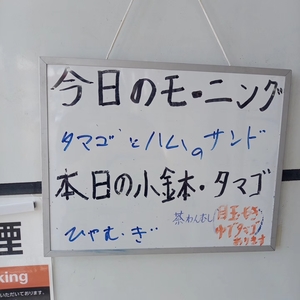 今日のモーニング
タマゴとハムのサンド
本日の小鉢・タマゴ
ひやむぎ
茶わんむし
目玉やき
ゆでタマゴ
あります
煙
king